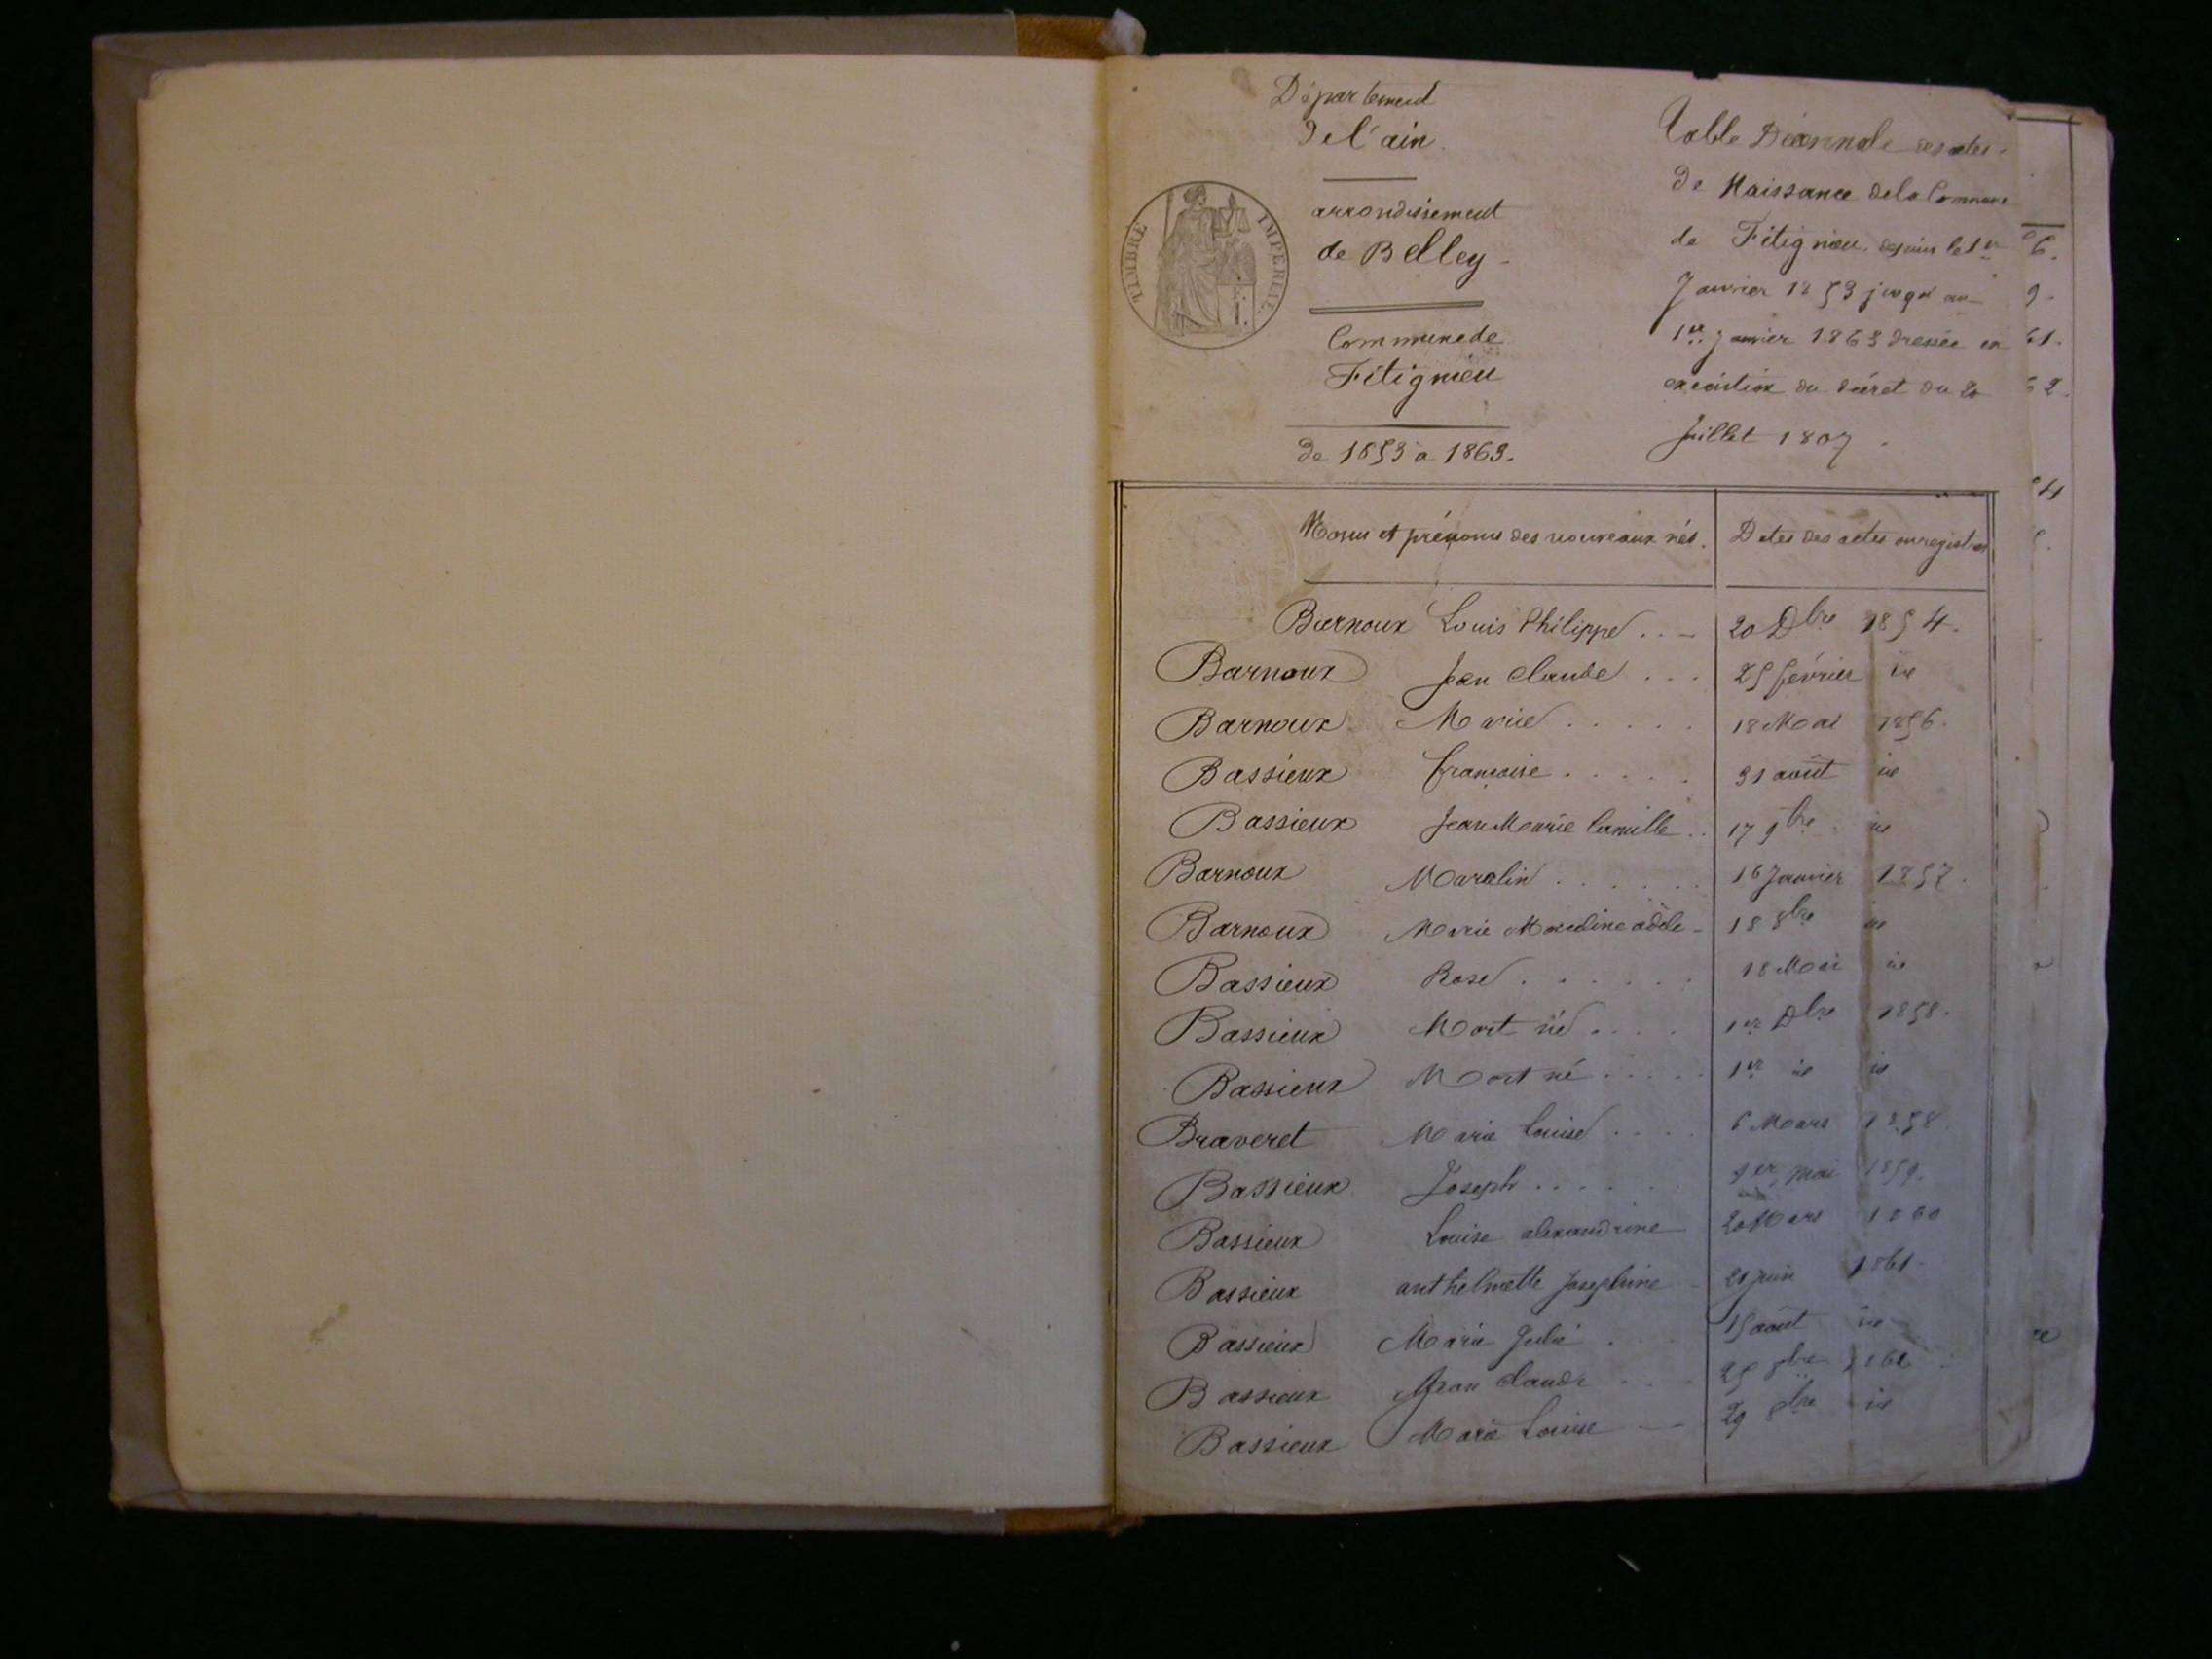 Département
de l'ain
TIMBRE IMPERIAL
arrondissement
de Belley
Commune de
Fitignieu
de 1853 a 1863.
Table Décennale des actes
de Naissance de la Commune
de Fitignieu depuis le 1er
Janvier 1853 jusqu'au
1er Janvier 1863 dressée en
exécution du décret du 20
Juillet 1807.
6.
9.
61.
62.
Noms et prénoms des nouveaux nés. Dates des actes enregistrés
Barnoux Louis Philippe 20 Dbre 1854.
Barnoux Jean Claude 25 février id
Barnoux Marie 18 Mai 1856.
Bassieux françoise 31 août id
Bassieux Jean Marie Camille 17 9bre id
Barnoux Marcelin 16 Janvier 1857.
Barnoux Marie adèle 18 8bre id
Bassieux Rose 18 Mai id
Bassieux Mort né 1er Dbre 1858.
Bassieux Mort né 1er id id
Braveret Marie Louise 6 Mars 1858.
Bassieux Joseph 1er mai 1859.
Bassieux Louise alexandrine 20 Mars 1860
Bassieux anthelmette Josephine 21 juin 1861.
Bassieux Marie Julie 15 août id
Bassieux Jean Claude 25 1862
Bassieux Marie Louise 29 8bre id